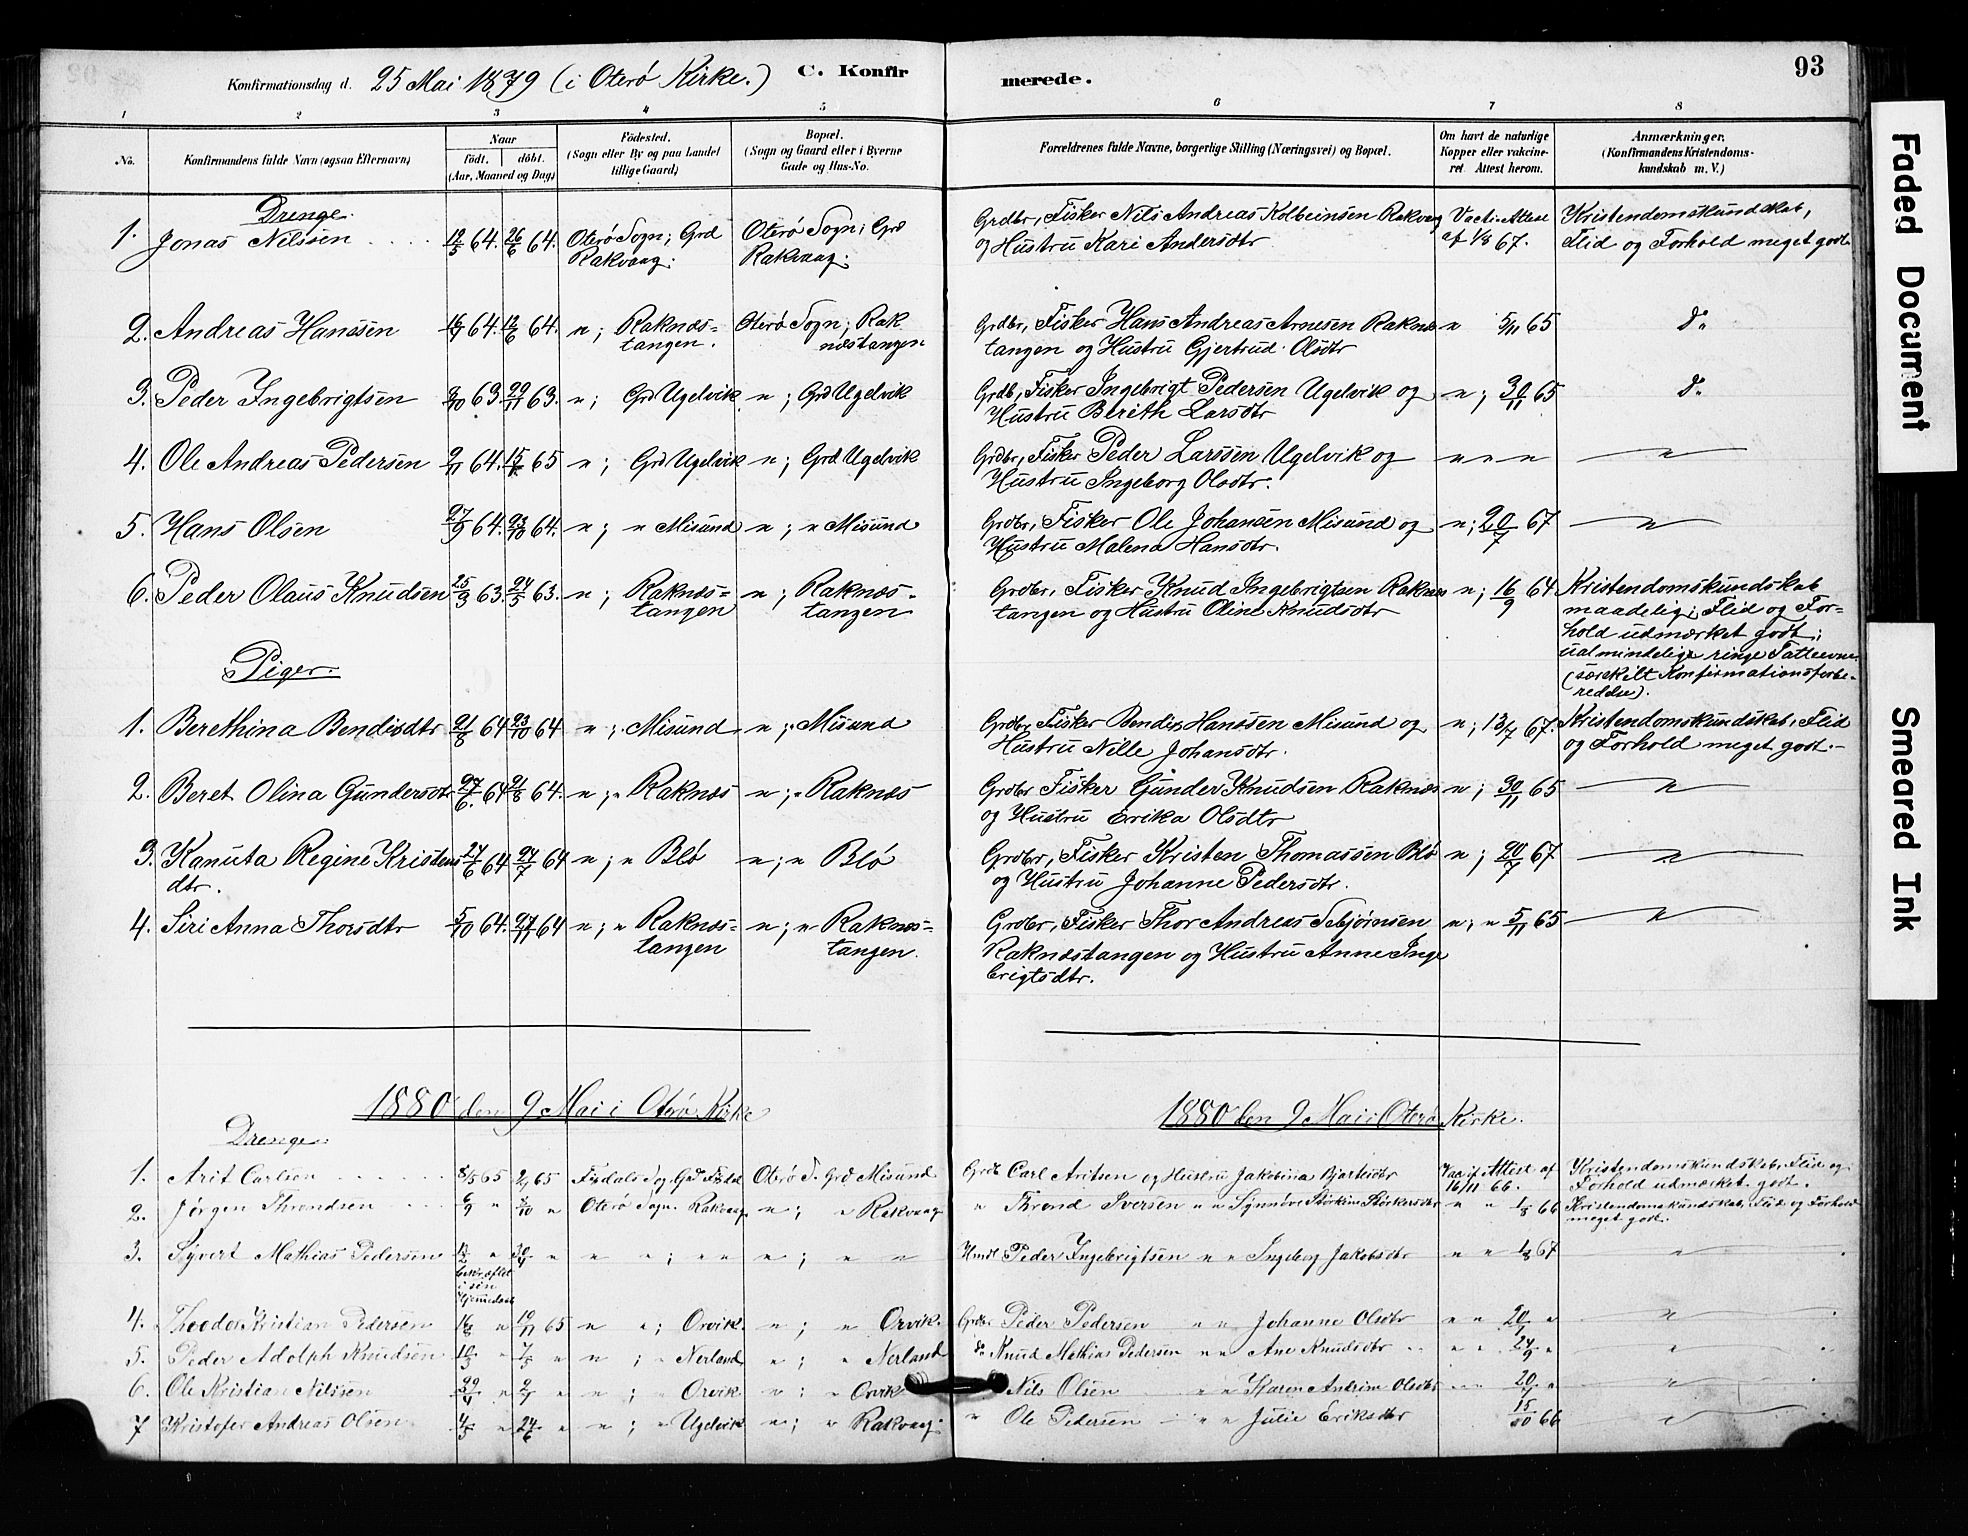 Konfirmationsdag d. 25 Mai 1879 (i Oterö Kirke.) C. Konfir merede. 93
1 2 3 4 5 6 7 8
No. Konfirmandens fulde Navn (ogsaa Efternavn) Naar födt. döbt. (Aar, Maaned og Dag) Födested. (Sogn eller By og paa Landet tillige Gaard) Bopæl. (Sogn og Gaard eller i Byerne Gade og Hus-No. Forældrenes fulde Navne, borgerlige Stilling (Næringsvei) og Bopæl. Om havt de naturlige Kopper eller vakcineret Attest herom. Anmærkninger. (Konfirmandens Kristendomskundskab m. V.)
Drenge.
1. Jonas Nilssen 12/5 64. 26/6 64. Oterö Sogn; Grd Oterö Sogn; Grd Grdbr, Fisker Nils Andreas Kolbeinsen Rakvaag Vacti. Attest Kristendomskundskab,
Rakvaag. Rakvaag. og Hustru Kari Andersdtr af 1/8 67. Flid og Forhold meget godt
2. Andreas Hanssen 64. 12/6 64. "; Raknæs= Oterö Sogn; Rak Grdbr, Fisker Hans Andreas Arnesen Raknæs " 5/11 65 do
tangen. næstangen tangen og Hustru Gjertrud Olsdtr
3. Peder Ingebrigtsen 2/10 63. 29/11 63. "; Grd Ugelvik "; Grd Ugelvik Grdb, Fisker Ingebrigt Pedersen Ugelvik og "; 30/11 65 do
Hustru Berith Larsdtr
4. Ole Andreas Pedersen 2/11 64. 65 "; Grd Ugelvik "; Grd Ugelvik Grdbr, Fisker Peder Larssen Ugelvik og " " " "
Hustru Ingeborg Olsdtr.
5. Hans Olsen 27/9 64. 23/10 64. "; " Misund "; " Misund Grdbr, Fisker Ole Johansen Misund og "; 20/7 67 "
Hustru Malena Hansdtr.
6. Peder Olaus Knudsen 25/3 63. 24/5 63. "; Raknæs= "; Raknæs= Grdbr, Fisker Knud Ingebrigtsen Raknæs "; 16/9 64 Kristendomskundskab
tangen tangen tangen og Hustru Oline Knudsdtr maadelig; Flid og For=
hold udmærket godt;
ualmindelige ringe Fatteevne
(særskilt Konfirmationsforbe-
redelse).
Piger.
1. Berethina Bendixdtr 21/8 64 23/10 64 "; Misund "; " Misund Grdbr, Fisker Bendix Hanssen Misund og "; 13/7 67. Kristendomskundskab, Flid
Hustru Nille Johansdtr. og Forhold meget godt.
2. Beret Olina Gundersdtr 27/6. 64 21/8 64. "; " Raknæs "; " Raknæs Grdbr Fisker Gunder Knudsen Raknæs "; 30/11 65 "
og Hustru Erika Olsdtr
3. Kanuta Regine Kristens 24/6 64 24/7 64 "; " Blö "; " Blö Grdbr, Fisker Kristen Thomassen Blö "; 20/7 67 "
dtr. og Hustru Johanne Pedersdtr.
4. Siri Anna Thorsdtr 5/10 64. 27/11 64 "; " Raknæs= "; " Raknæs= Grdbr, Fisker Thor Andreas Sebjørnsen "; " 5/11 65 "
tangen tangen. Raknæstangen og Hustru Anne Inge
brigtsdtr.
1880 den 9 Mai i Oterö Kirke 1880 den 9 Mai i Oterö Kirke.
Drenge.
1. Arit Carlsen 8/5 65 65 Oterö S. Grd Misund Grdb Carl Aritsen og Hustru Jakobina Attest af Kristendomskundskab, Flid og
16/11 66. Forhold udmærket godt.
2. Jörgen Throndsen 6/9 " " Oterö Sogn. Rakvaag "; " Rakvaag " Thrond Iversen " " Synnöve " " 1/8 66 Kristendomskundskab, Flid og Forhold
meget godt.
3. Syvert Mathias Pedersen " " " "; " " "; " " Peder Ingebrigtsen " " Ingeborg Jakobsdtr " " 1/8 67 "
bekræftet
i sin
4. Kristian Pedersen " 65 " "; Orvik. "; " Orvik. Grdbr. Peder Pedersen " " Johanne Olsdtr " " "
5. Peder Adolph Knudsen " " "; " Nerland "; " Nerland do Knud Mathias Pedersen " " Ane Knudsdtr " " 24/9 " "
6. Ole Kristian Nilssen " " "; " Orvik "; " Orvik Nils Olsen " " Karen Andrine Olsdtr " " 20/7 " "
7 Kristofer Andreas Olsen 4/5 " 24/6 " "; " Ugelvik "; " Rakvaag. " Ole Pedersen " " Julie Eriksdtr 15/10 66 "
Faded Document
Smeared Ink